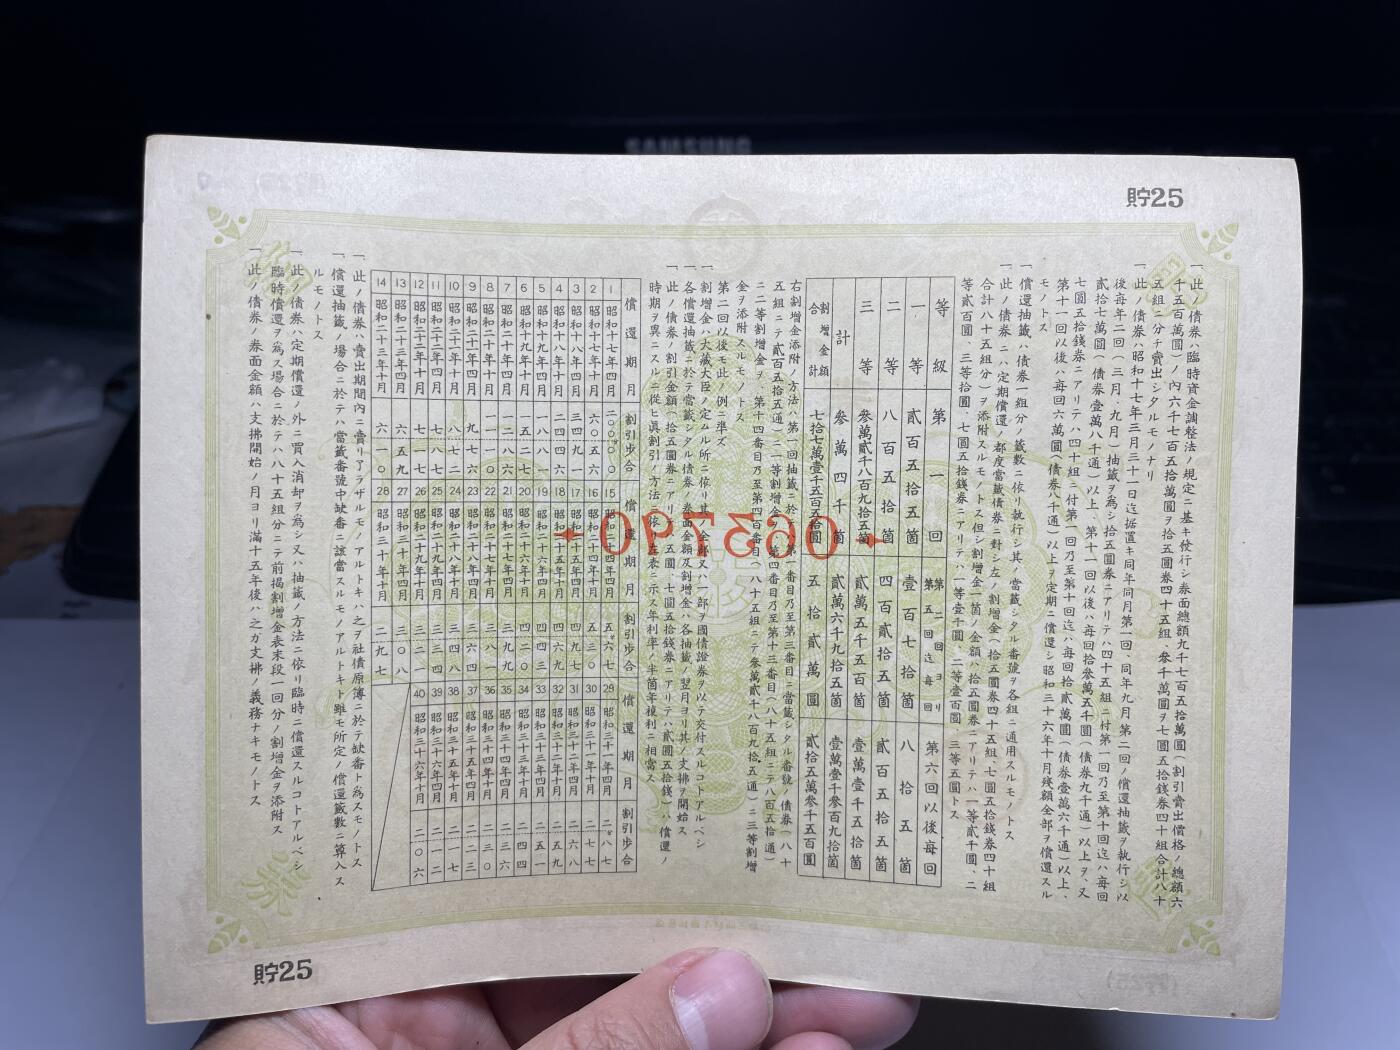 SAMSUNG
貯25
一此ノ債券ハ臨時資金調整法ノ規定ニ基キ發行シ券面總額九千七百五拾萬圓(割引賣出價格ノ總額六
千五百萬圓)ノ內六千七百五拾萬圓ヲ拾五圓券四十五組、參千萬圓ヲ七圓五拾錢券四十組合計八十
五組ニ分チ賣出シタルモノナリ
一此ノ債券ハ昭和十七年三月三十一日迄据置キ同年同月第一回、同年九月第二回ノ償還抽籤ヲ執行シ以
後每年二回(三月、九月)抽籤ヲ爲シ拾五圓券ニアリテハ四十五組ニ付第一回乃至第十回迄ハ每回
貳拾七萬圓(債券壹萬八千通)以上、第十一回以後ハ每回拾參萬五千圓(債券九千通)以上ヲ、又
七圓五拾錢券ニアリテハ四十組ニ付第一回乃至第十回迄ハ每回拾貳萬圓(債券壹萬六千通)以上、
第十一回以後ハ每回六萬圓(債券八千通)以上ヲ定期ニ償還シ昭和三十六年十月殘額全部ヲ償還スル
モノトス
償還抽籤ハ債券一組分ノ籤數ニ依リ執行シ其ノ當籤シタル番號ヲ各組ニ通用スルモノトス
一此ノ債券ニハ定期償還ノ都度當籤債券ニ對シ左ノ割增金(拾五圓券四十五組、七圓五拾錢券四十組
合計八十五組分)ヲ添附スルモノトス但シ割增金一箇ノ金額ハ拾五圓券ニアリテハ一等貳千圓、二
等貳百圓、三等拾圓、七圓五拾錢券ニアリテハ一等壹千圓、二等壹百圓、三等五圓トス
等級 第一回 第二回ヨリ第五回迄每回 第六回以後每回
一等 貳百五拾五箇 壹百七拾箇 八拾五箇
二等 八百五拾箇 四百貳拾五箇 貳百五拾五箇
三等 參萬貳千八百九拾五箇 貳萬五千五百箇 壹萬壹千五拾箇
計 參萬四千箇 貳萬六千九拾五箇 壹萬壹千參百九拾箇
割增金額合計 七拾七萬壹千五百五拾圓 五拾貳萬圓 貳拾五萬參千五百圓
右割增金添附ノ方法ハ第一回抽籤ニ於テハ第一番目乃至第三番目ニ當籤シタル番號ノ債券(八十
五組ニテ貳百五拾五通)ニ一等割增金ヲ、第四番目乃至第十三番目(八十五組ニテ八百五拾通)
ニ二等割增金ヲ、第十四番目乃至第四百番目(八十五組ニテ參萬貳千八百九拾五通)ニ三等割增
金ヲ添附スルモノトス
第二回以後モ此ノ例ニ準ズ
一割增金ハ大藏大臣ノ定ムル所ニ依リ其ノ全部又ハ一部ヲ國債證券ヲ以テ交付スルコトアルベシ
一各償還抽籤ニ於テ當籤シタル債券ノ券面金額及割增金ハ各抽籤ノ翌月ヨリ其ノ支拂ヲ開始ス
一此ノ債券ノ割引金額(拾五圓券ニアリテハ五圓、七圓五拾錢券ニアリテハ貳圓五拾錢)ハ償還ノ
時期ヲ異ニスルニ從ヒ眞割引ノ方法ニ依リ左表ニ示ス年利率ノ半箇年複利ニ相當ス
償還期月 割引步合 償還期月 割引步合 償還期月 割引步合
1 昭和十七年四月 15 昭和二十四年四月 五六七 29 昭和三十一年四月 二八七
2 昭和十七年十月 六〇五六 16 昭和二十四年十月 五三〇 30 昭和三十一年十月 二七七
3 昭和十八年四月 三四九一 17 昭和二十五年四月 四九七 31 昭和三十二年四月 二六八
4 昭和十八年十月 二四四六 18 昭和二十五年十月 四六九 32 昭和三十二年十月 二五九
5 昭和十九年四月 一八八一 19 昭和二十六年四月 四四三 33 昭和三十三年四月 二五一
6 昭和十九年十月 一五二七 20 昭和二十六年十月 四二〇 34 昭和三十三年十月 二四四
7 昭和二十年四月 一二八六 21 昭和二十七年四月 三九九 35 昭和三十四年四月 二三六
8 昭和二十年十月 一一一〇 22 昭和二十七年十月 三八一 36 昭和三十四年十月 二三〇
9 昭和二十一年四月 九七六 23 昭和二十八年四月 三六四 37 昭和三十五年四月 二二三
10 昭和二十一年十月 八七二 24 昭和二十八年十月 三四八 38 昭和三十五年十月 二一七
11 昭和二十二年四月 七八八 25 昭和二十九年四月 三三四 39 昭和三十六年四月 二一二
12 昭和二十二年十月 七一七 26 昭和二十九年十月 三二一 40 昭和三十六年十月 二〇六
13 昭和二十三年四月 六五九 27 昭和三十年四月 三〇八
14 昭和二十三年十月 六一〇 28 昭和三十年十月 二九七
一此ノ債券ハ賣出期間內ニ賣リ了ラザルモノアルトキハ之ヲ社債原簿ニ於テ缺番ト爲スモノトス
一償還抽籤ノ場合ニ於テハ當籤番號中缺番ニ該當スルモノアルトキト雖モ所定ノ償還籤數ニ算入ス
ルモノトス
一此ノ債券ハ定期償還ノ外ニ買入消却ヲ爲シ又ハ抽籤ノ方法ニ依リ臨時ニ償還スルコトアルベシ
臨時償還ヲ爲ス場合ニ於テハ八十五組分ニテ前揭割增金表末段一回分ノ割增金ヲ添附ス
一此ノ債券ノ券面金額ハ支拂開始ノ月ヨリ滿十五年後ハ之ガ支拂ノ義務ナキモノトス
貯25